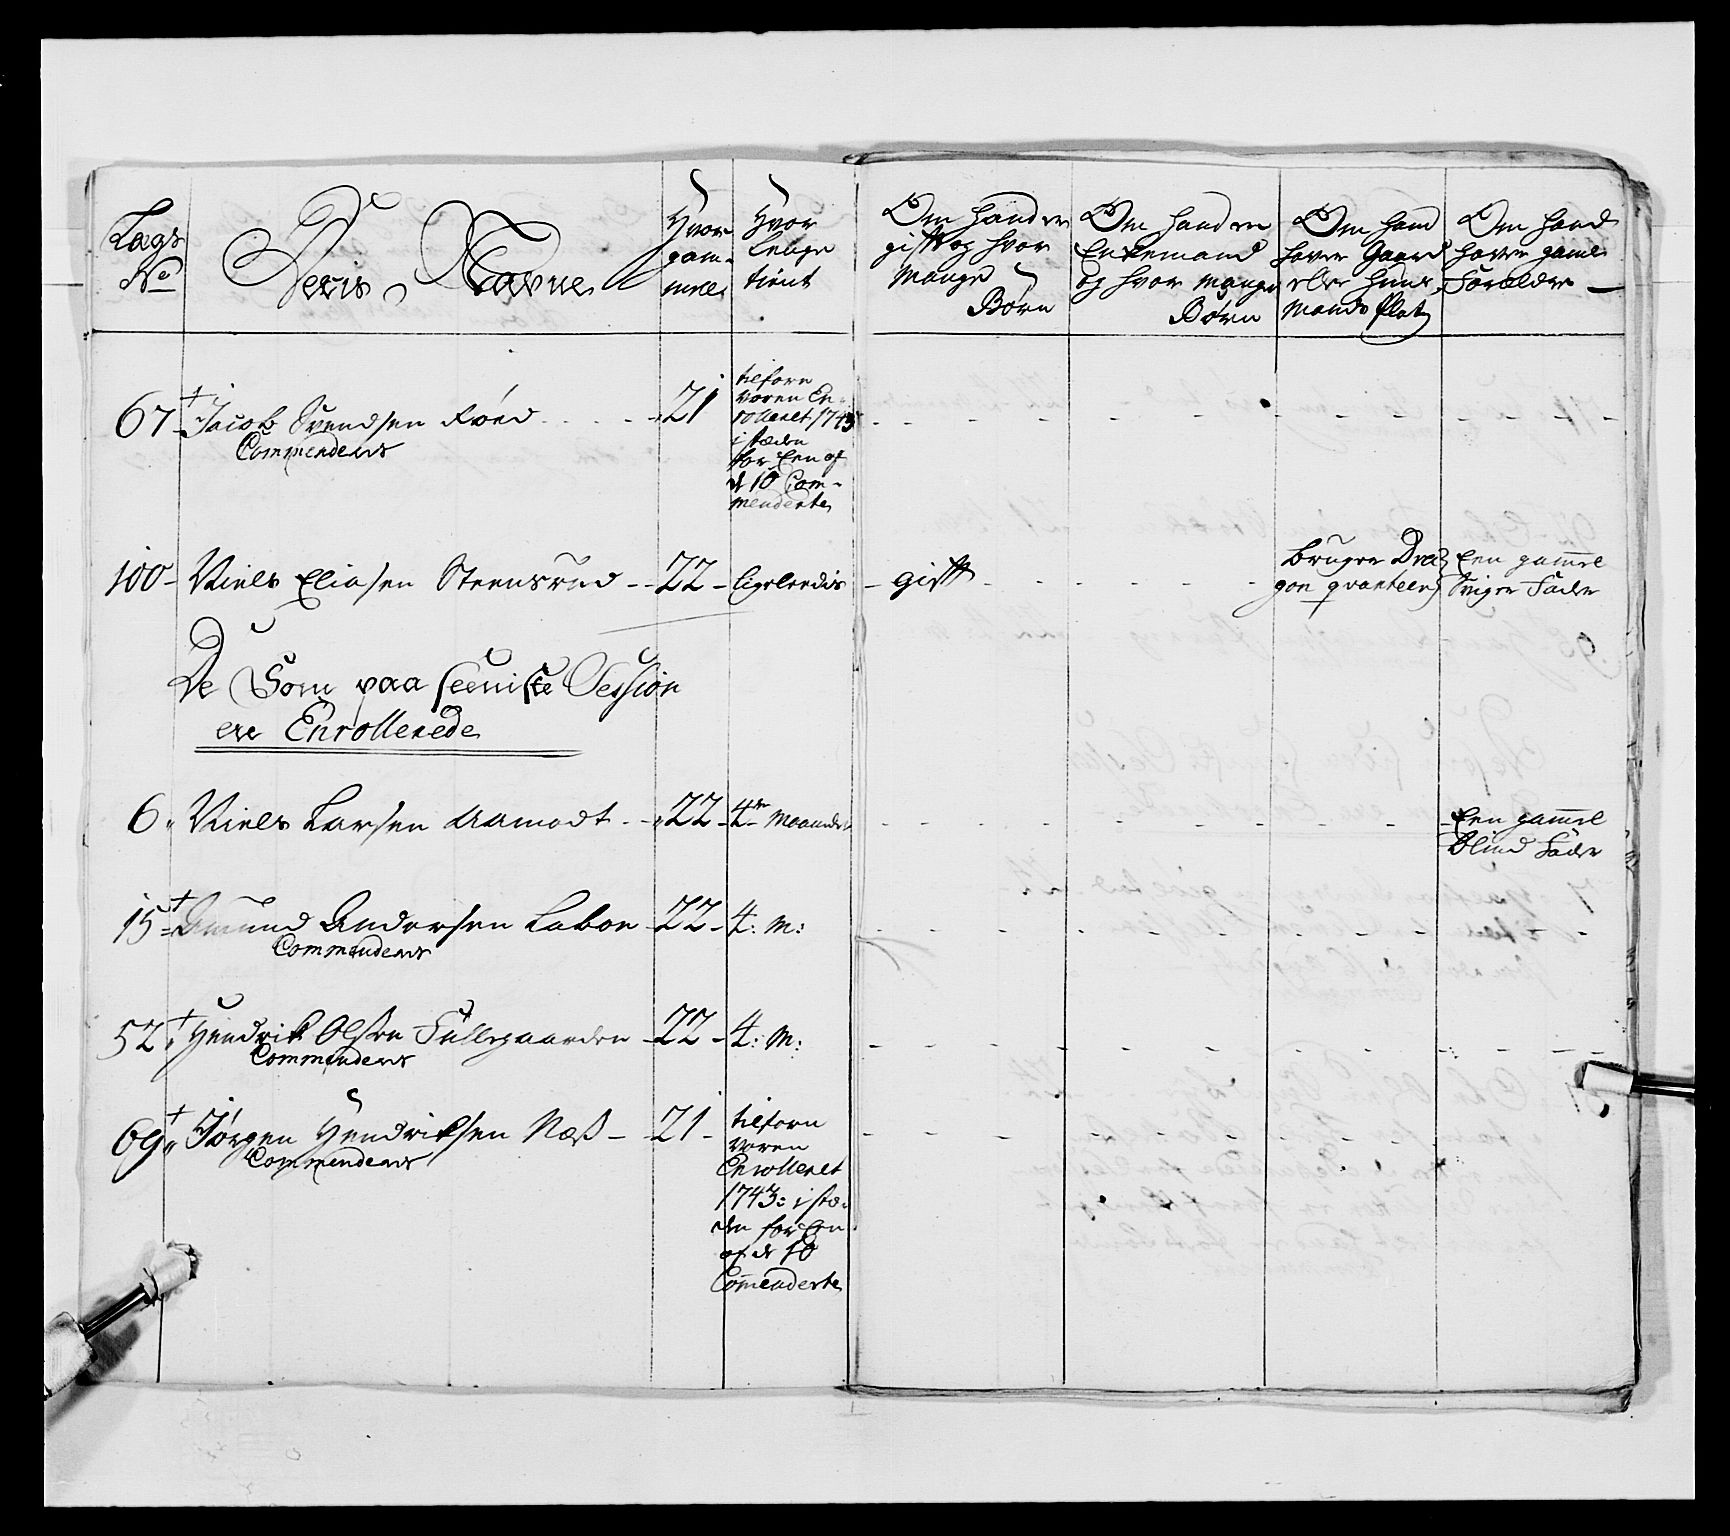 Lægs
No
Deris Navne
Hvor
gam-
mel
Hvor
lenge
tient
Om hand er
gift og hvor
mange
Børn
Om hand er
Enkemand
og hvor mange
Børn
Om hand
haver Gaard
eller Huus-
mands Plads
Om hand
haver gamle
Forældre
67 † Jacob Svendsen Røed - 21
Commenderet
tilforn
voren En-
rolleret 1743
i stæden
for Een af
de 10 Com-
menderte
100 - Niels Eliasen Steensrud - 22 - ligeleedis - gift
bruger Dra-
gon qvarteer
Een gammel
Sviger Fader
De Som paa seeniste Session
ere Enrollerede
6 Niels Larsen Aamodt - 22 - 4re Maaneder
Een gammel
blind Fader
15 † Amund Andersen Labon - 22 - 4: M:
Commenderet
52 † Hendrik Olsen Fullegaarden - 22 - 4: M:
Commenderet
69 † Jørgen Hendriksen Næss - 21 -
Commenderet
tilforn
voren
Enrolleret
1743: i stæ-
den for Een
af de 10
Commenderte